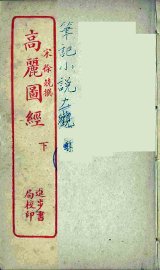 筆記小說大觀
宋徐兢撰
高麗圖經
下
進步書
局校印